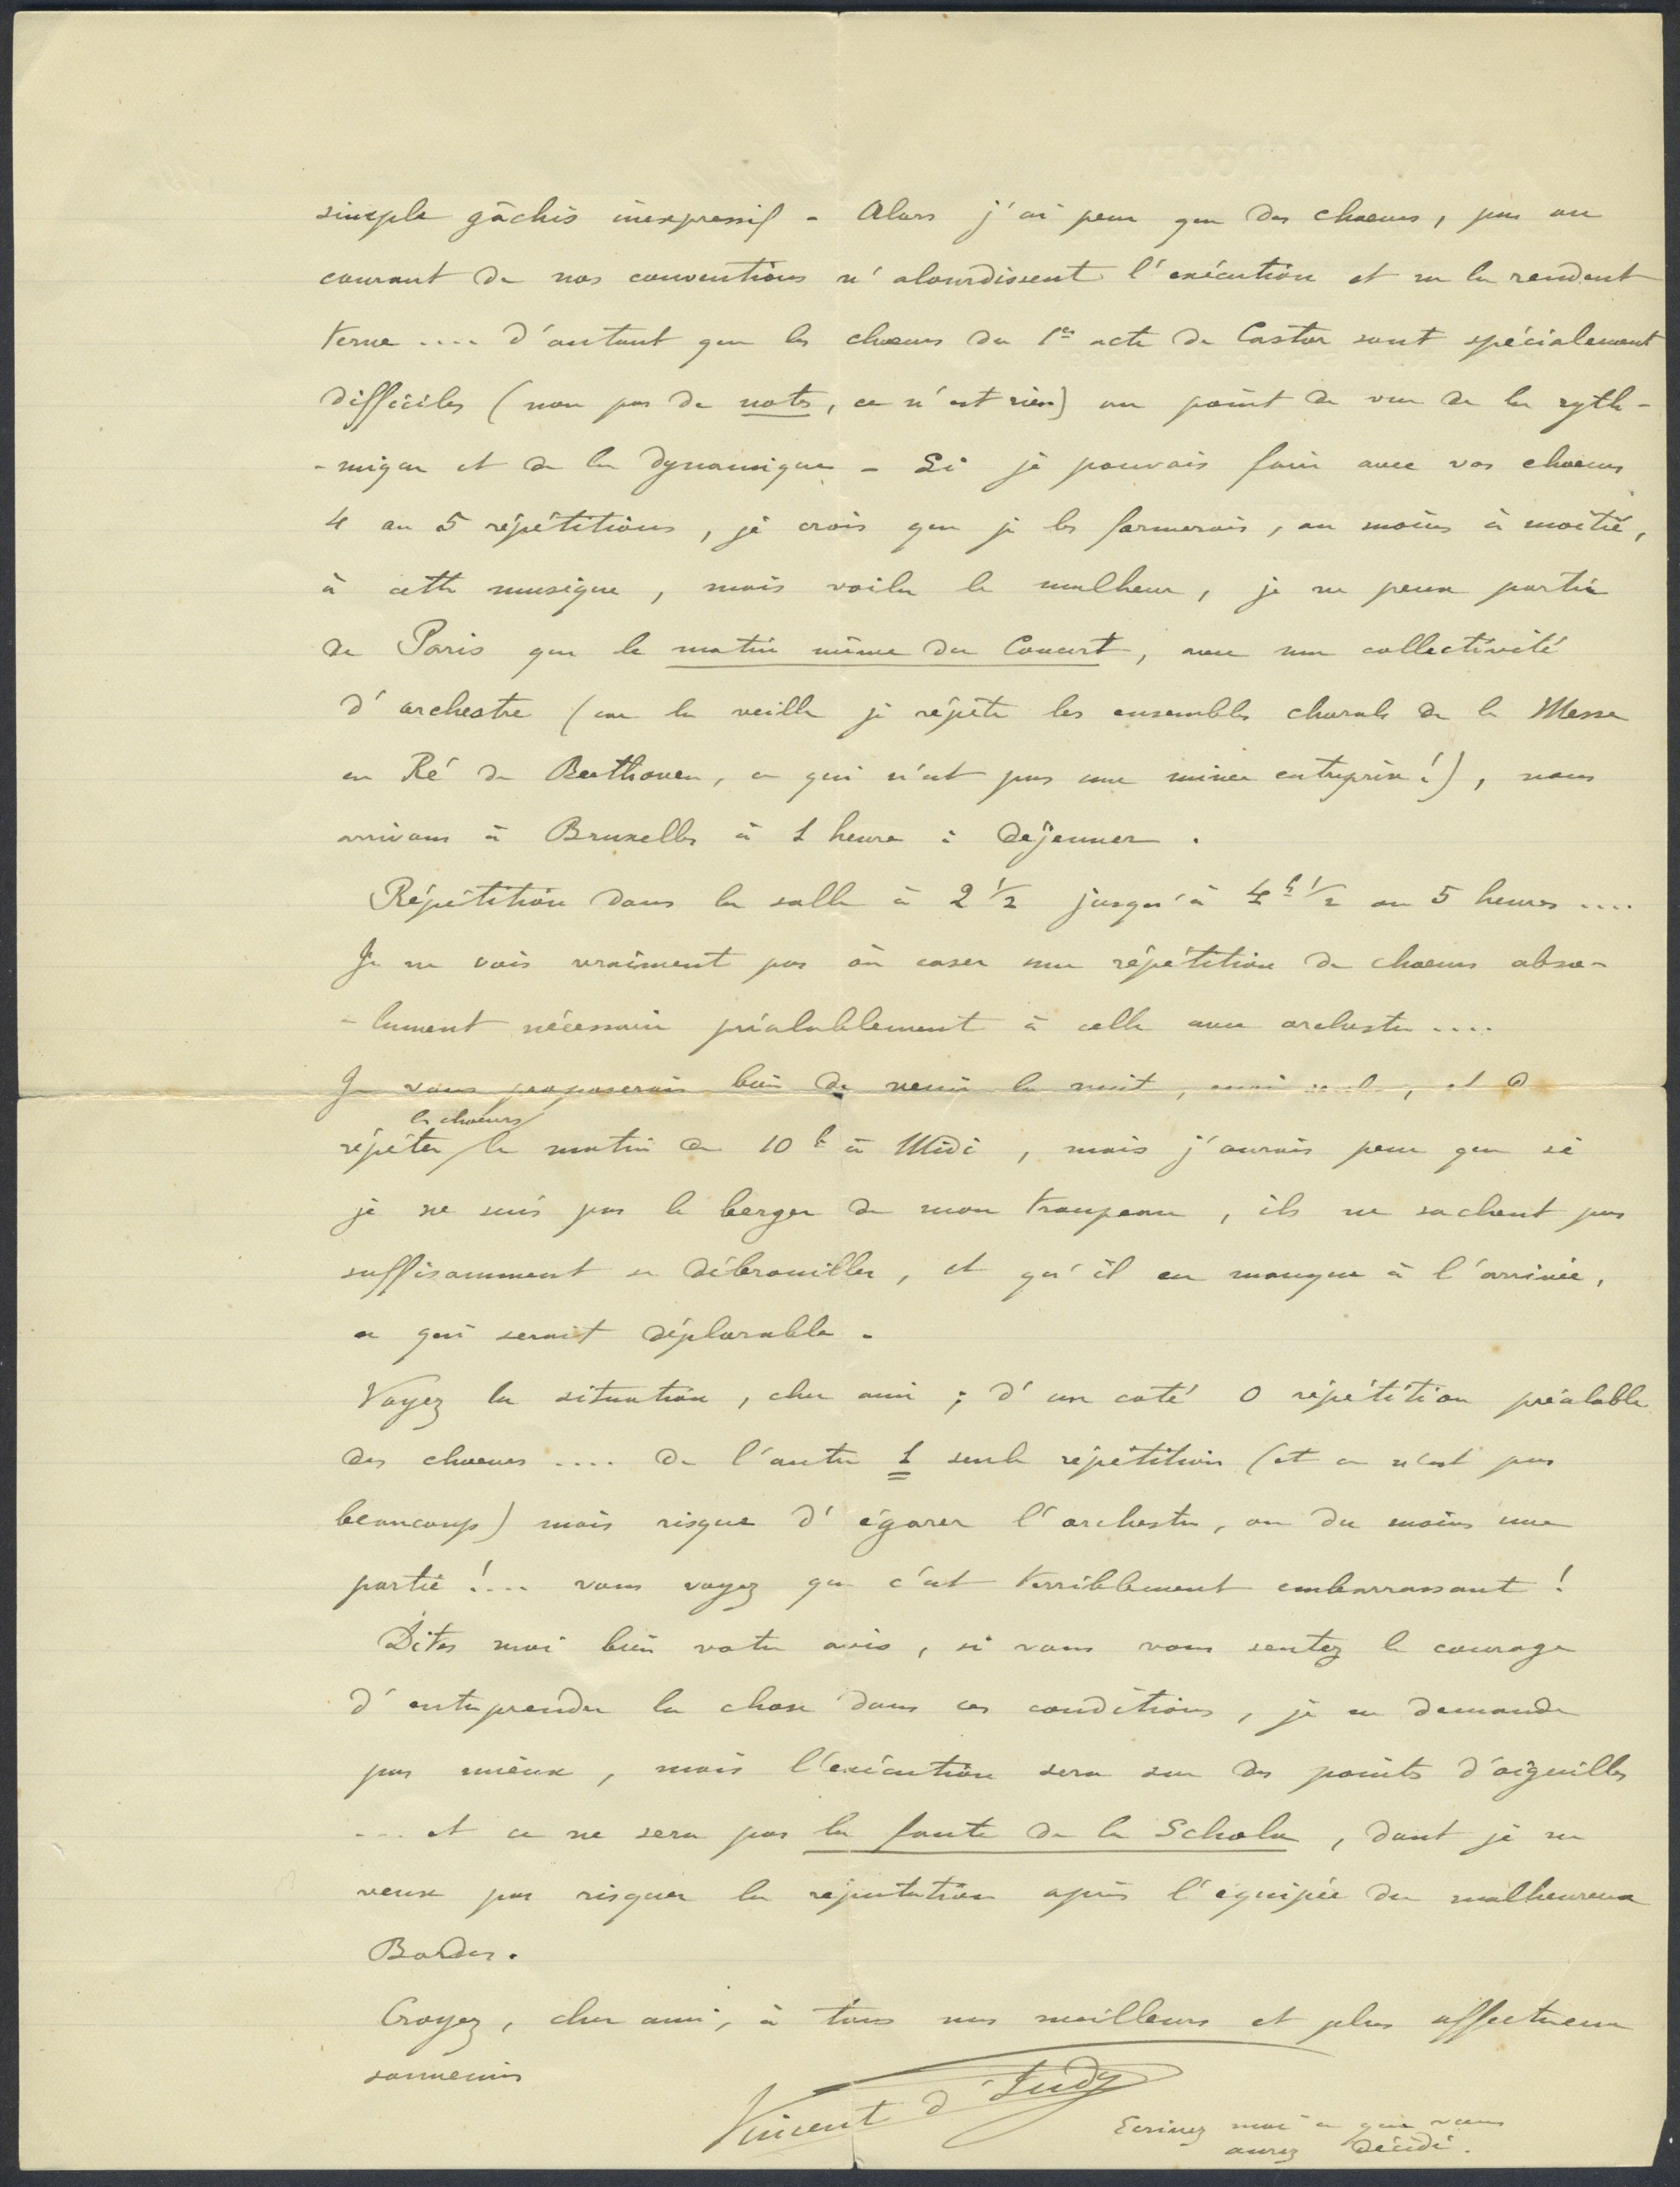 simple gâchis inexpressif - Alors j'ai peur que des chœurs, pas au
courant de nos conventions n'alourdissent l'exécution et ne la rendent
terne .... d'autant que les chœurs du 1er acte de Castor sont spécialement
difficiles (non pas de notes, ce n'est rien) au point de vue de la ryth-
-mique et de la dynamique - Si je pouvais faire avec vos chœurs
4 ou 5 répétitions, je crois que je les formerais, au moins à moitié,
à cette musique, mais voila le malheur, je ne peux partir
de Paris que le matin même du Concert, avec ma collectivité
d'orchestre (car la veille je répète les ensembles chorals de la Messe
en Ré de Beethoven, ce qui n'est pas une mince entreprise!), nous
arrivons à Bruxelles à 1 heure : déjeuner .
Répétition dans la salle à 2 1/2 jusqu'à 4h 1/2 ou 5 heures ....
Je ne vois vraiment pas où caser une répétition de chœurs abso-
-lument nécessaire préalablement à celle avec orchestre ....
Je vous proposerais bien de venir la nuit, moi seul, et de
les chœurs
répéter le matin de 10h à Midi, mais j'aurais peur que si
je ne suis pas le berger de mon troupeau, ils ne sachent pas
suffisamment se débrouiller, et qu'il en manque à l'arrivée,
ce qui serait déplorable -
Voyez la situation, cher ami ; d'un coté 0 répétition préalable
des chœurs .... de l'autre 1 seule répétition (et ce n'est pas
beaucoup) mais risque d'égarer l'orchestre, ou du moins une
partie !... vous voyez que c'est terriblement embarrassant !
Dites moi bien votre avis, si vous vous sentez le courage
d'entreprendre la chose dans ces conditions, je ne demande
pas mieux, mais l'exécution sera sur des points d'aiguilles
... et ce ne sera pas la faute de la Schola, dont je ne
veux pas risquer la réputation après l'équipée du malheureux
Bordes.
Croyez, cher ami, à tous mes meilleurs et plus affectueux
souvenirs
Vincent d'Indy
Ecrivez moi ce que vous
aurez décidé.